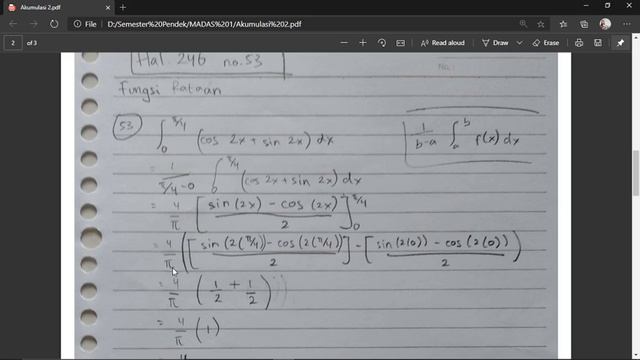 Akumulasi 2.pdf
D:/Semester%20Pendek/MADAS%201/Akumulasi%202.pdf
2 of 3
Read aloud
Draw
Erase
Hal. 246 no. 53
No.:
Fungsi Rataan
53) ∫₀^{π/4} (cos 2x + sin 2x) dx
1/(b-a) ∫ₐᵇ f(x) dx
= 1/(π/4 - 0) ∫₀^{π/4} (cos 2x + sin 2x) dx
= 4/π [(sin (2x) - cos (2x))/2]₀^{π/4}
= 4/π ([(sin (2(π/4)) - cos (2(π/4)))/2] - [(sin (2(0)) - cos (2(0)))/2])
= 4/π (1/2 + 1/2)
= 4/π (1)